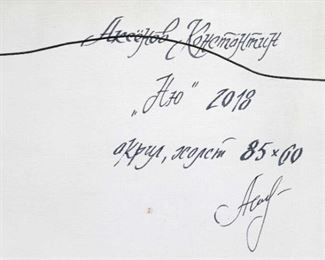 Аксёнов Константин
„Ню" 2018
акрил, холст 85×60